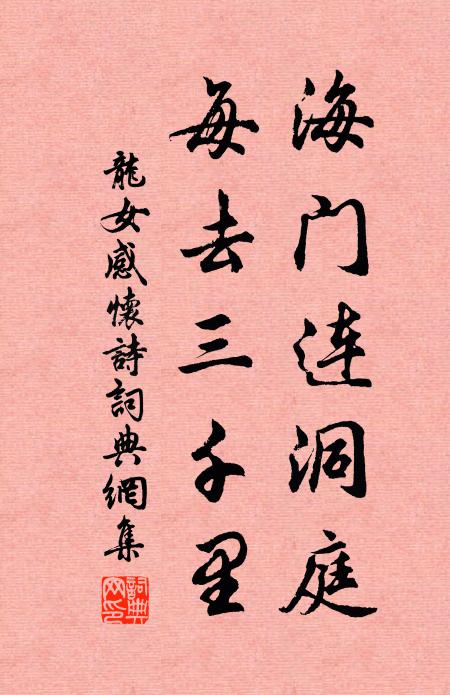 海门连洞庭
每去三千里
龍女感懷詩詞典網集
詞典網印